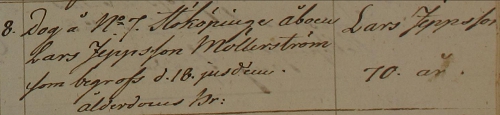 8. Dog å No 7. Stököpinge åboen Lars Jeppsson
Lars Jeppsson Möllerström
som begrofs d. 18. jusdem. 70. år.
ålderdoms Br: